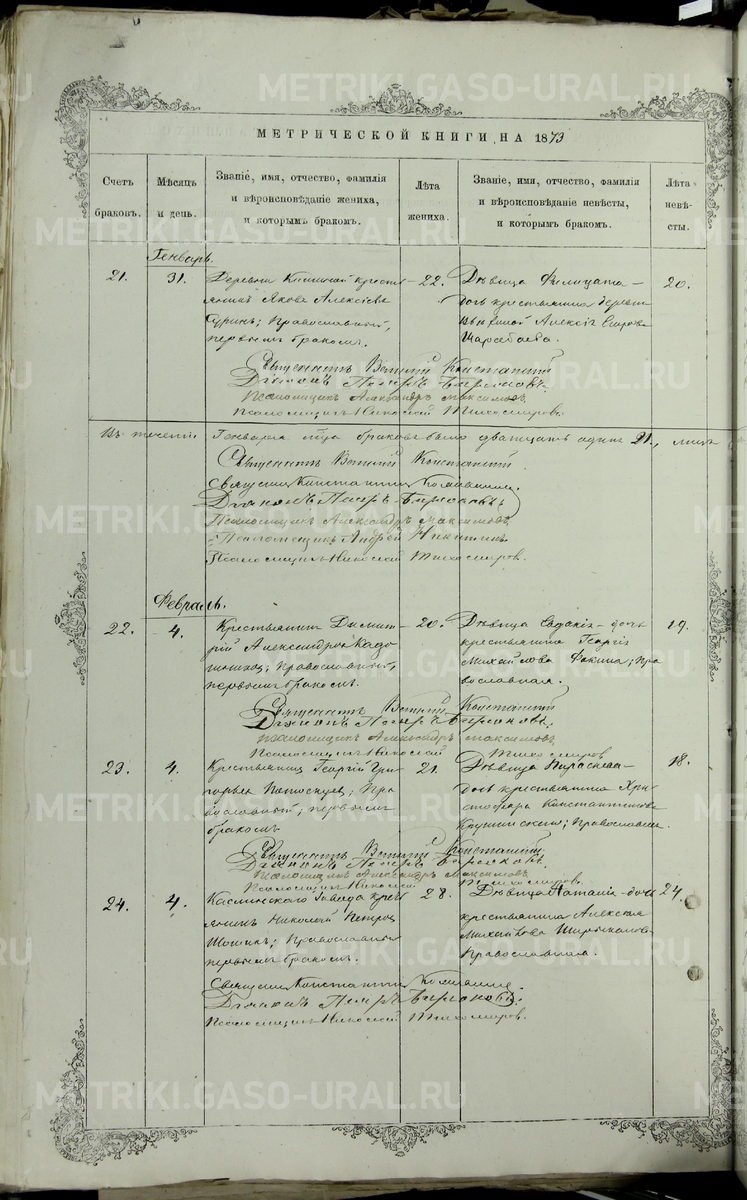 МЕТРИЧЕСКОЙ КНИГИ, НА 1873
Счетъ браковъ.
Мѣсяцъ и день.
Званіе, имя, отчество, фамилія и вѣроисповѣданіе жениха, и которымъ бракомъ.
Лѣта жениха.
Званіе, имя, отчество, фамилія и вѣроисповѣданіе невѣсты, и которымъ бракомъ.
Лѣта невѣсты.
Генварь.
21.
31.
Деревни крестьянинъ Яковъ Алексіевъ
Православный,
первымъ бракомъ.
22.
Дѣвица Филицата
дочь крестьянина деревни
Алексія
20.
Священникъ Констанскій
Діаконъ Петръ Бирюковъ
Псаломщикъ Александръ Максимовъ
Псаломщикъ Николай Тихомировъ.
Въ теченіи Генваря м-ца браковъ было двадцать одинъ 21.
Священникъ Констанскій
Священникъ Константинъ
Діаконъ Петръ Бирюковъ
Псаломщикъ Александръ Максимовъ
Псаломщикъ Андрей Никитинъ
Псаломщикъ Николай Тихомировъ.
Февраль.
22.
4.
Крестьянинъ Димит-
рій Александровъ
Православный,
первымъ бракомъ.
20.
Дѣвица Евдокія - дочь
крестьянина Георгія
Михайлова Фокина; Пра
вославная.
19.
Священникъ Констанскій
Діаконъ Петръ Бирюковъ
Псаломщикъ Александръ Максимовъ
Псаломщикъ Николай Тихомировъ
23.
4.
Крестьянинъ Георгій Гри
горьевъ Пра
вославный; первымъ
бракомъ
21.
Дѣвица Параскева
дочь крестьянина Хри
стофора Константинова
Православная.
18.
Священникъ Констанскій
Діаконъ Петръ Бирюковъ
Псаломщикъ Александръ Максимовъ
Псаломщикъ Николай Тихомировъ.
24.
4.
Каслинского Завода кресть
янинъ Николай Петровъ
Православный
первымъ бракомъ.
28.
Дѣвица Наталія - дочь
крестьянина Алексія
Михайлова
Православная.
24.
Священникъ Константинъ
Діаконъ Петръ Бирюковъ
Псаломщикъ Николай Тихомировъ.
METRIKI.GASO-URAL.RU